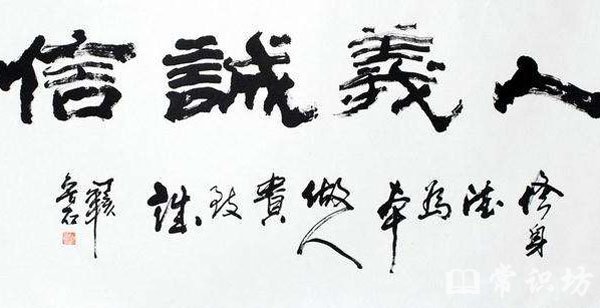 人義誠信
修身德為本做人貴致誠
常识坊